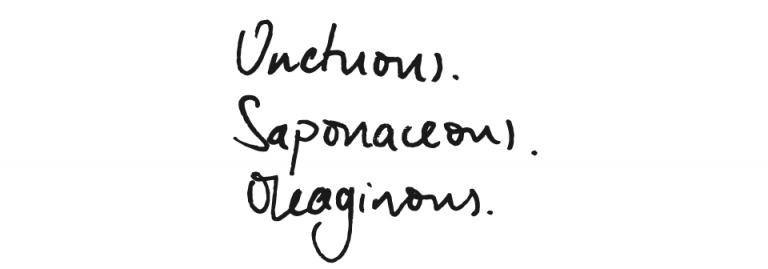 Unctuous.
Saponaceous.
Oleaginous.